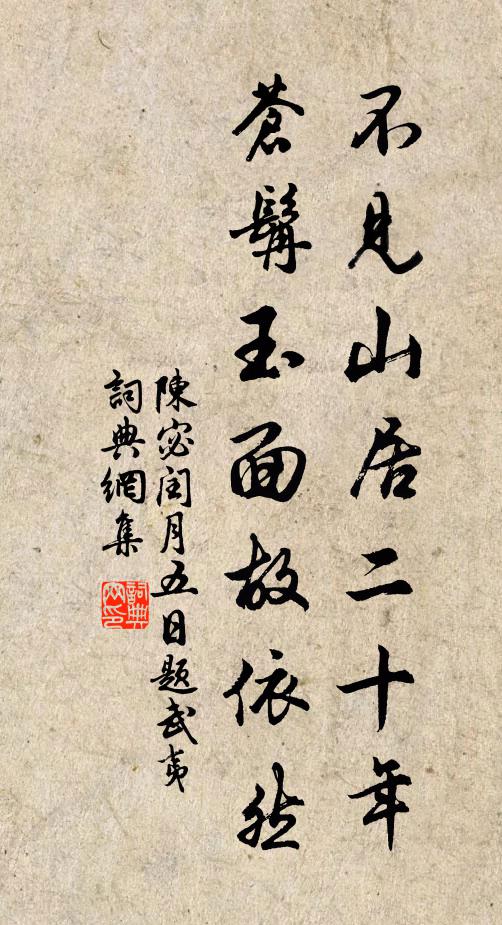 不見山居二十年
蒼髯玉面故依然
陳宓閏月五日題武夷
詞典網集
詞典網印